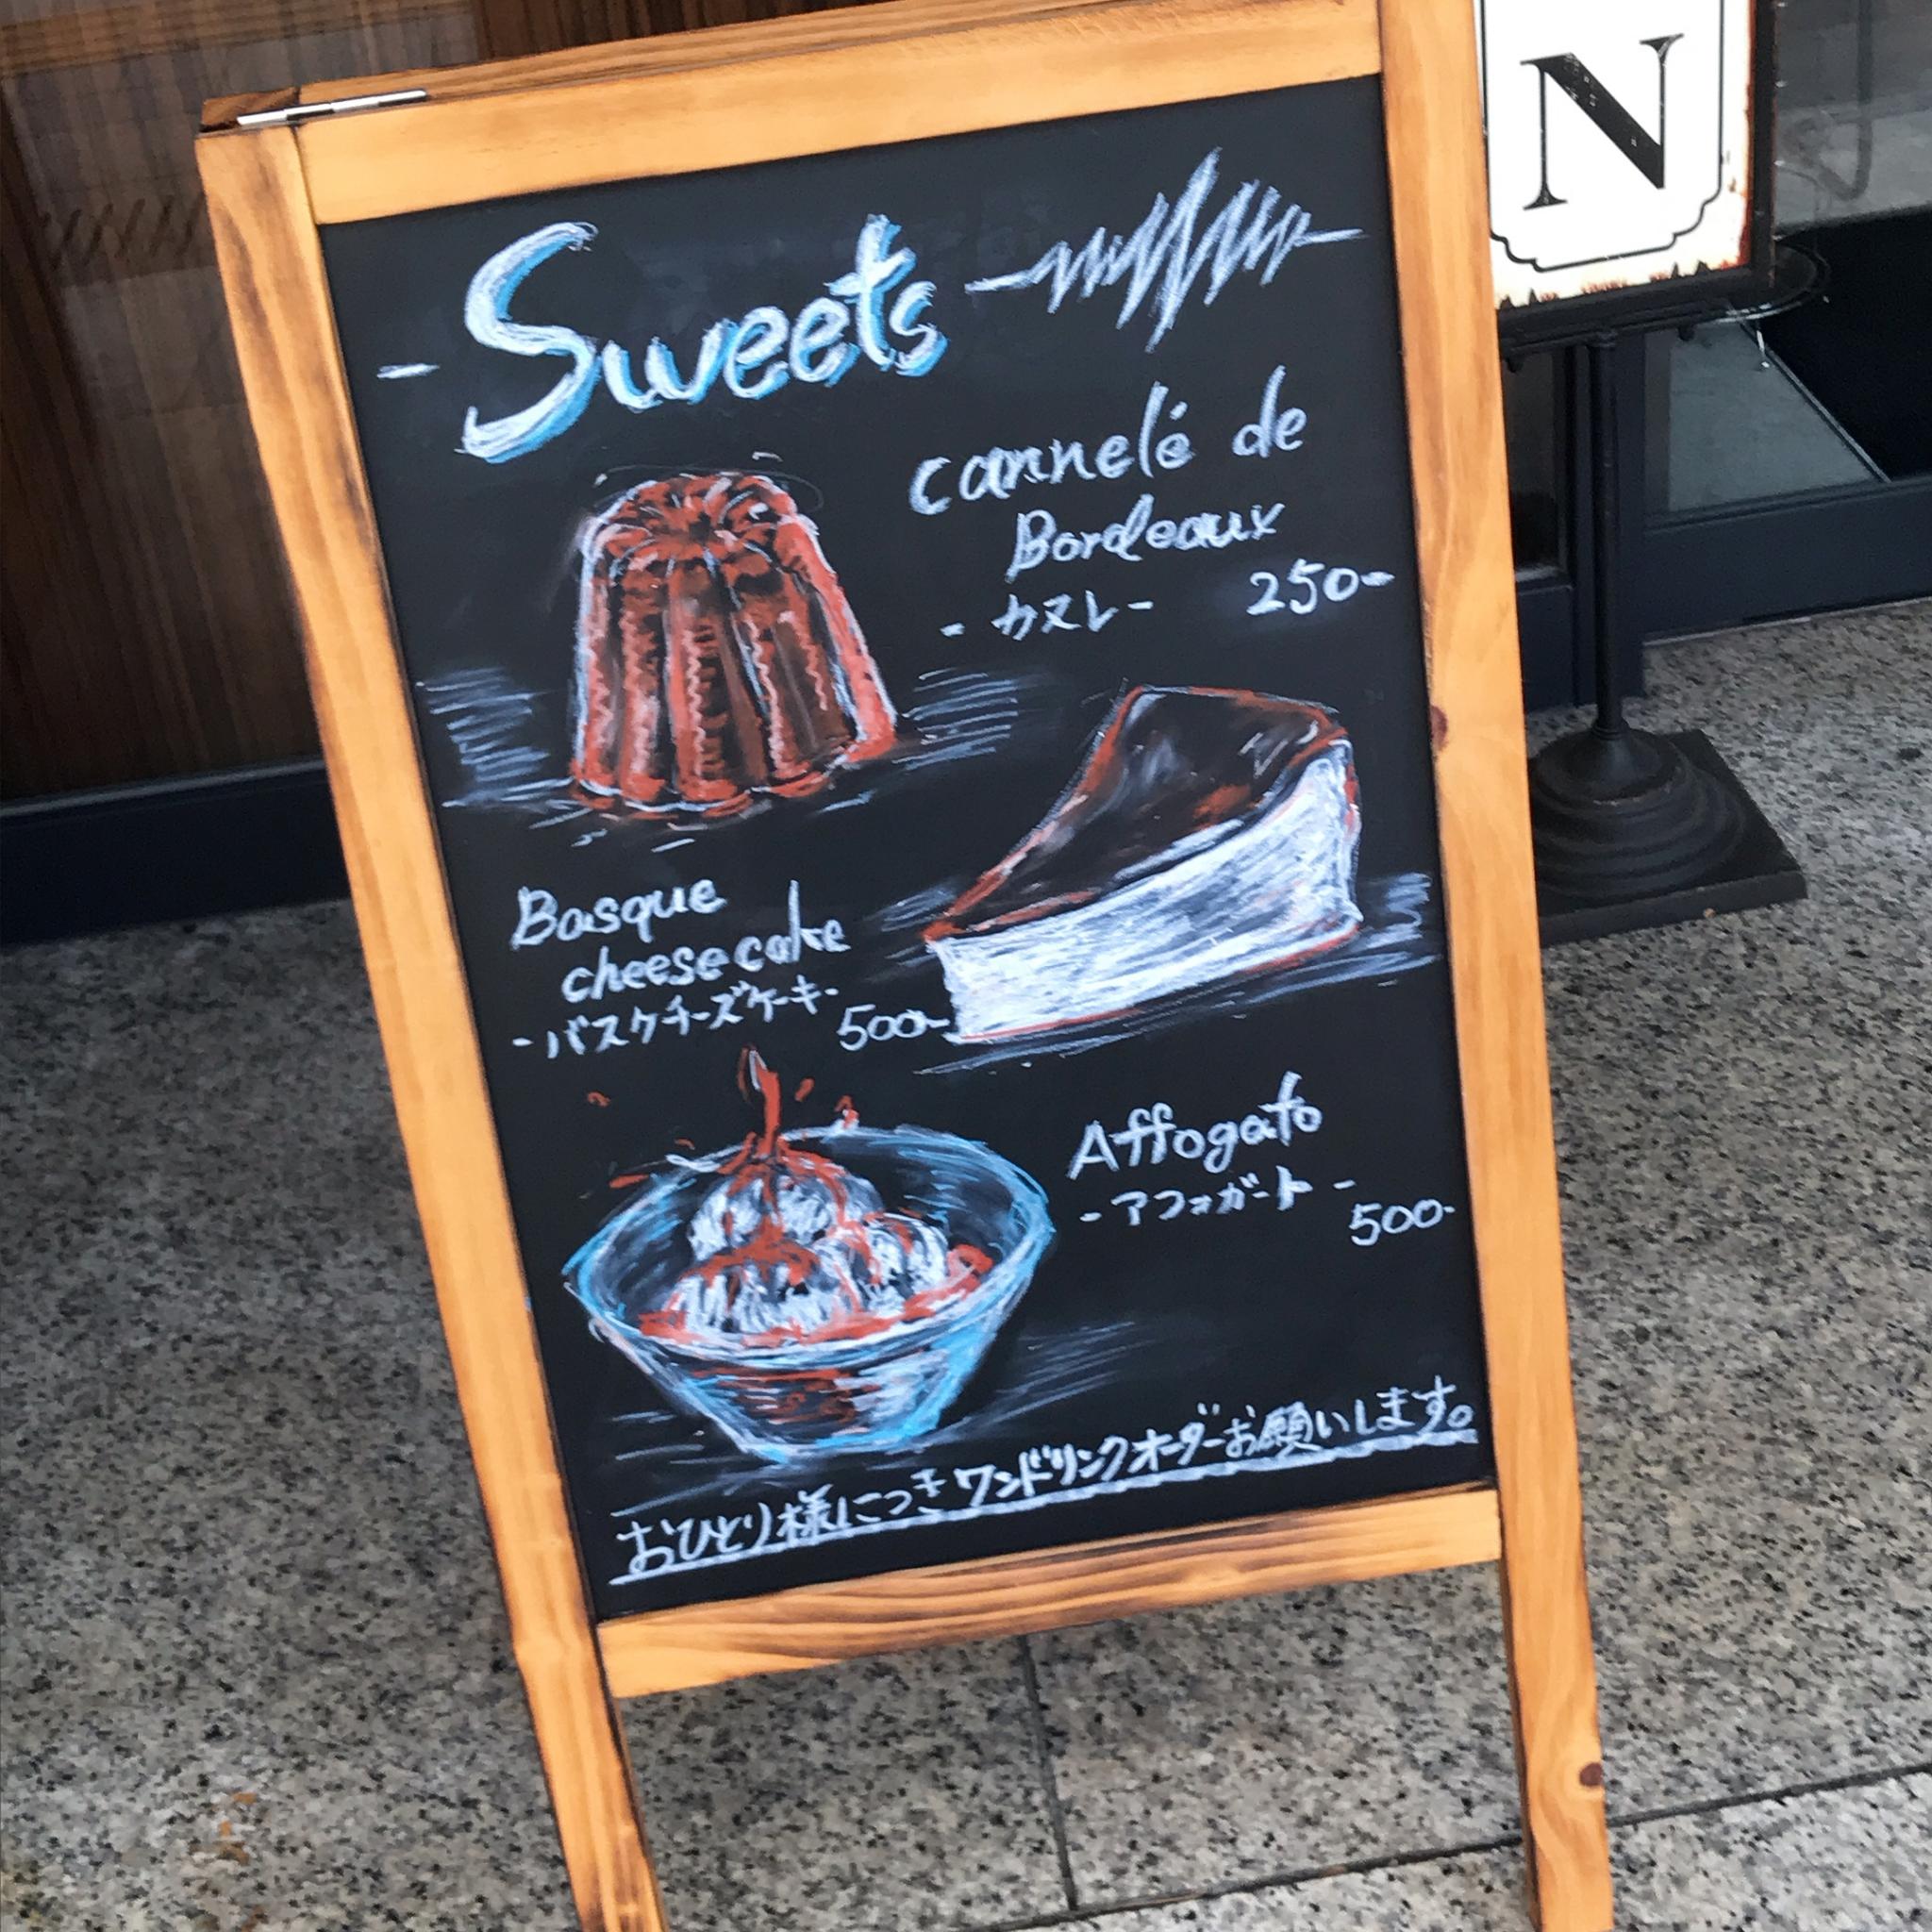 N
- Sweets
cannelé de
Bordeaux
- カヌレ - 250-
Basque
cheese cake
- バスクチーズケーキ -
500-
Affogato
- アフォガート -
500-
おひとり様につきワンドリンクオーダーお願いします。